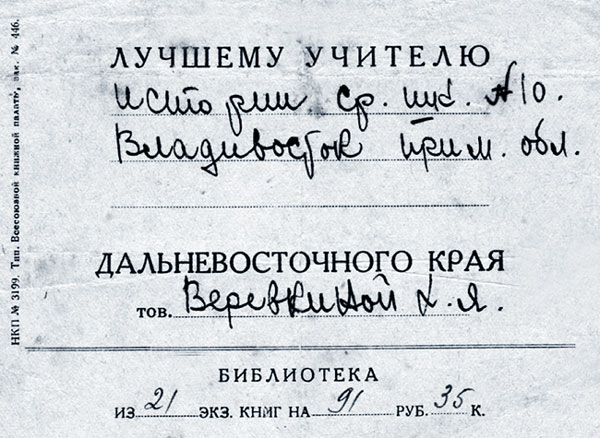 ЛУЧШЕМУ УЧИТЕЛЮ
истории ср. шк. №10.
Владивосток Прим. обл.
ДАЛЬНЕВОСТОЧНОГО КРАЯ
тов. Веревкиной Х.Я.
БИБЛИОТЕКА
ИЗ 21 ЭКЗ. КНИГ НА 91 РУБ. 35 К.
НКП № 3199. Тип. Всесоюзной книжной палаты, зак. № 446.